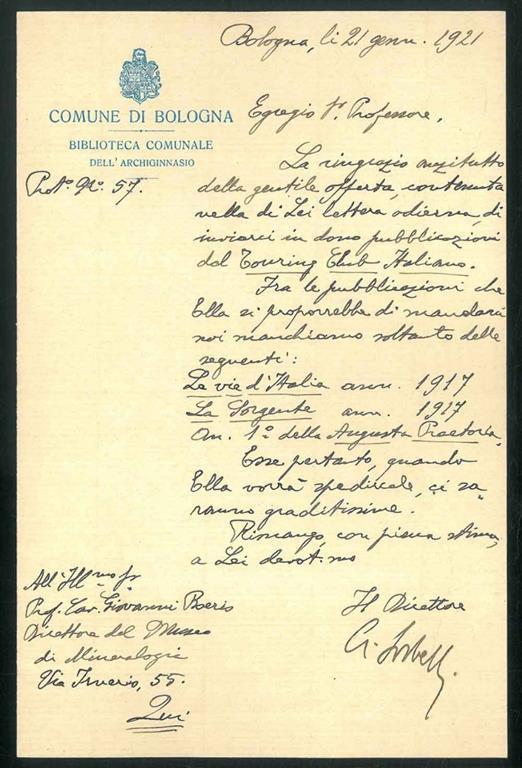 Bologna, li 21 genn. 1921
COMUNE DI BOLOGNA
BIBLIOTECA COMUNALE
DELL'ARCHIGINNASIO
Prot.o No. 57.
Egregio Sr. Professore,
La ringrazio anzitutto
della gentile offerta, contenuta
nella di Lei lettera odierna, di
inviarci in dono pubblicazioni
del Touring Club Italiano.
Fra le pubblicazioni che
Ella si proporrebbe di mandarci
noi manchiamo soltanto delle
seguenti:
Le vie d'Italia ann. 1917
La Sorgente ann. 1917
An. 1o della Augusta Praetoria.
Esse pertanto, quando
Ella vorrà spedircele, ci sa-
ranno graditissime.
Rimango, con piena stima,
a Lei devot.mo
Il Direttore
A. Sorbelli
All'Ill.mo Sr
Prof. Cav. Giovanni Boeris
Direttore del Museo
di Mineralogia
Via Irnerio, 55.
Qui